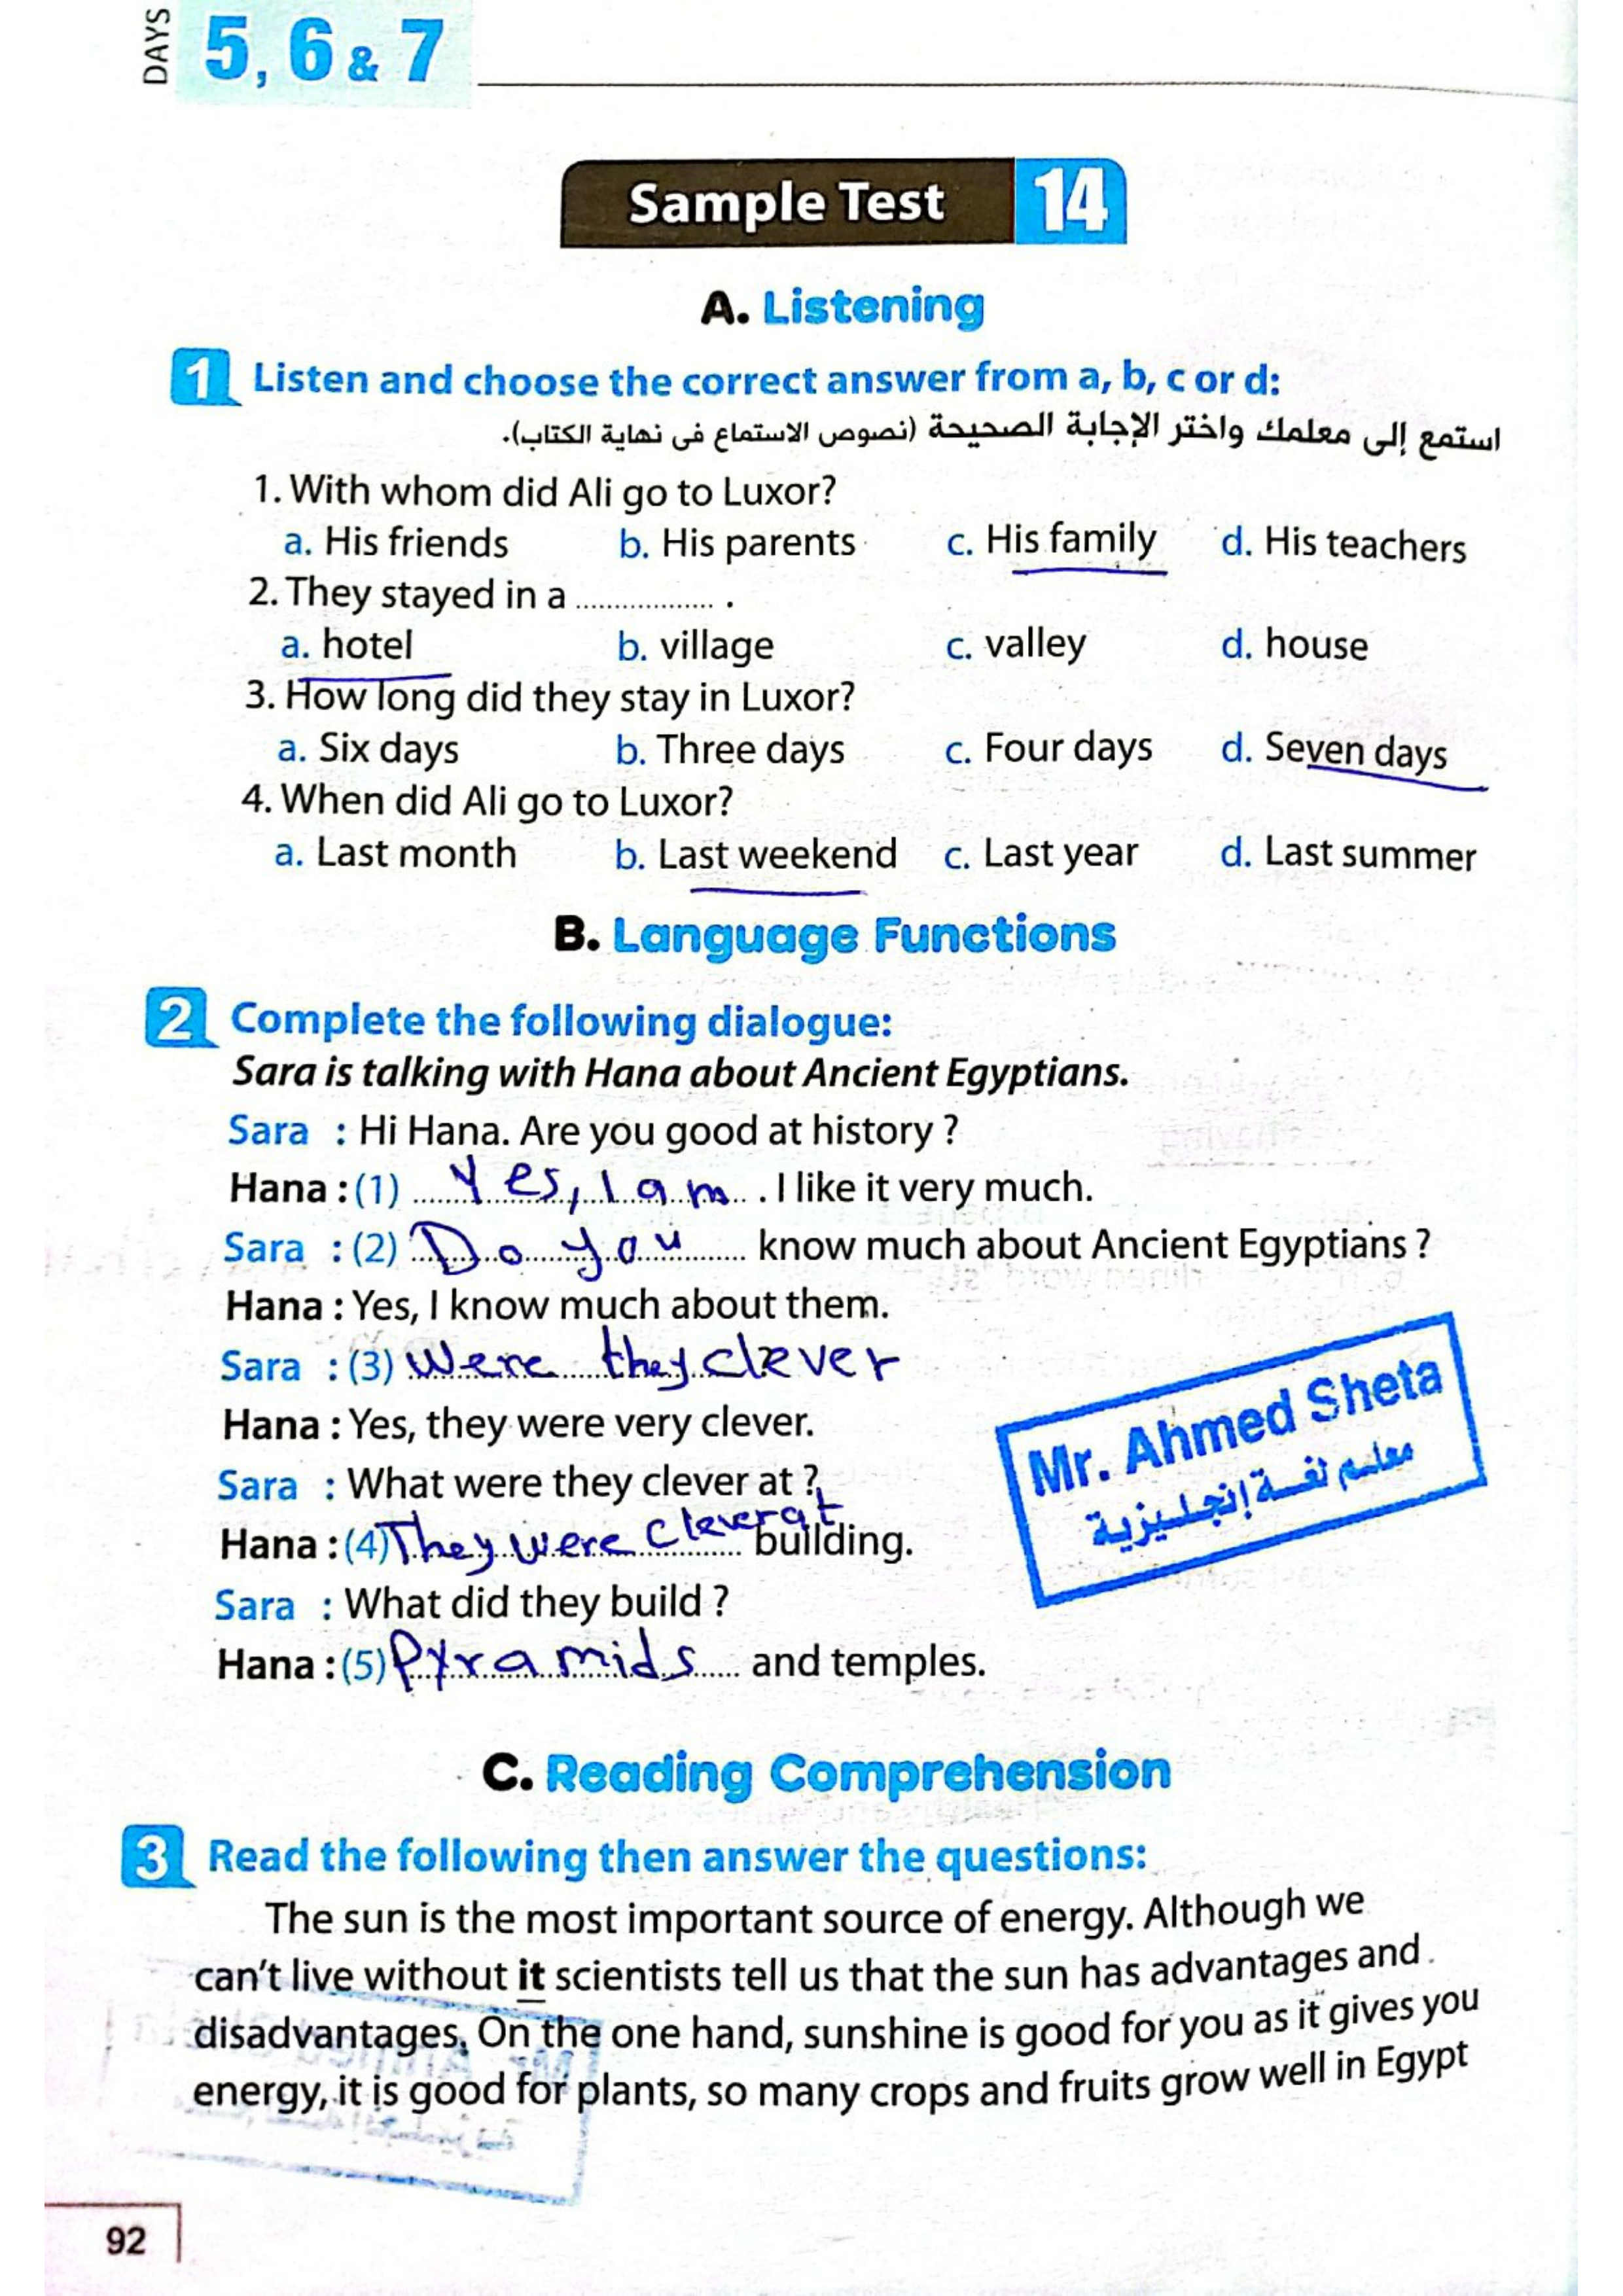 DAYS 5, 6 & 7
Sample Test 14
A. Listening
1 Listen and choose the correct answer from a, b, c or d:
استمع إلى معلمك واختر الإجابة الصحيحة (نصوص الاستماع فى نهاية الكتاب).
1. With whom did Ali go to Luxor?
a. His friends b. His parents c. His family d. His teachers
2. They stayed in a .................. .
a. hotel b. village c. valley d. house
3. How long did they stay in Luxor?
a. Six days b. Three days c. Four days d. Seven days
4. When did Ali go to Luxor?
a. Last month b. Last weekend c. Last year d. Last summer
B. Language Functions
2 Complete the following dialogue:
Sara is talking with Hana about Ancient Egyptians.
Sara : Hi Hana. Are you good at history ?
Hana : (1) Yes, I am . I like it very much.
Sara : (2) Do you know much about Ancient Egyptians ?
Hana : Yes, I know much about them.
Sara : (3) Were they clever
Hana : Yes, they were very clever.
Sara : What were they clever at ?
Hana : (4) They were clever at building.
Sara : What did they build ?
Hana : (5) Pyramids and temples.
Mr. Ahmed Sheta
معلم لغة إنجليزية
C. Reading Comprehension
3 Read the following then answer the questions:
The sun is the most important source of energy. Although we
can't live without it scientists tell us that the sun has advantages and
disadvantages. On the one hand, sunshine is good for you as it gives you
energy, it is good for plants, so many crops and fruits grow well in Egypt
92